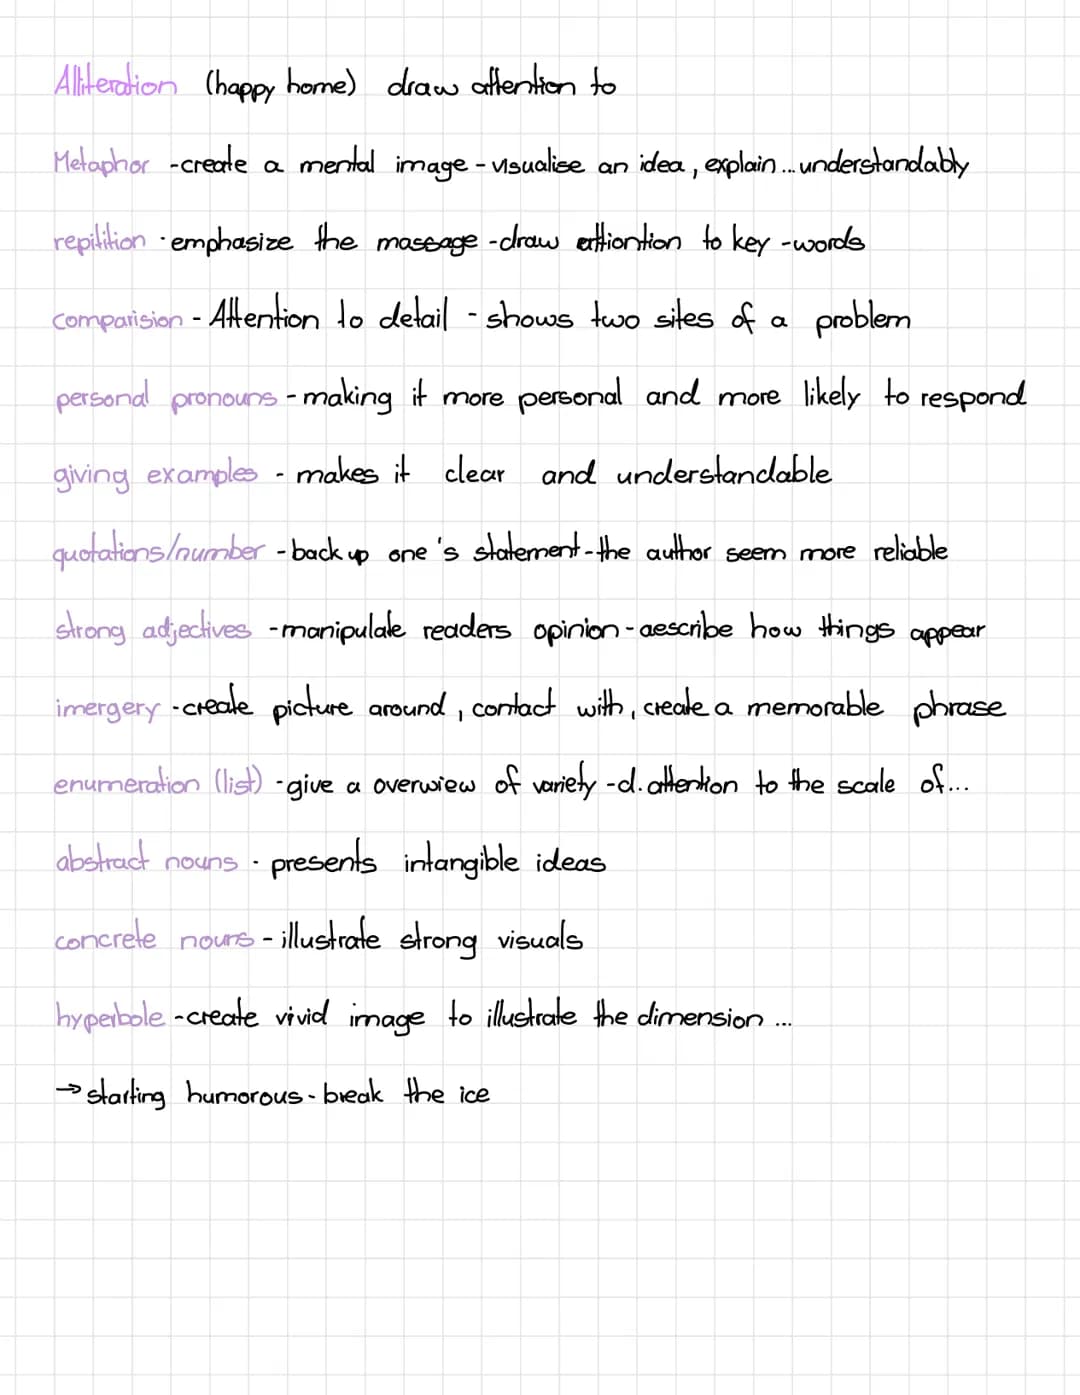 Alliteration (happy home) draw attention to
Metaphor - create a mental image - visualise an idea, explain... understandably
repitition · emphasize the massage - draw attiontion to key - words
comparision - Attention to detail - shows two sites of a problem
personal pronouns - making it more personal and more likely to respond
giving examples - makes it clear and understandable
quotations/number - back up one's statement - the author seem more reliable
strong adjectives - manipulate readers opinion - describe how things appear
imergery - create picture around, contact with, create a memorable phrase
enumeration (list) - give a overwiew of variety - d. attention to the scale of...
abstract nouns · presents intangible ideas
concrete nouns - illustrate strong visuals
hyperbole - create vivid image to illustrate the dimension ...
→ starting humorous - break the ice